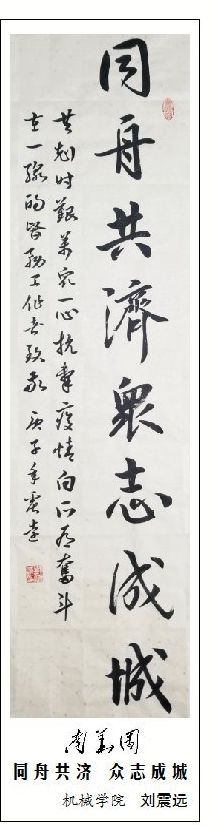 同舟共濟衆志成城
共尅时艱萬衆一心抗擊疫情向所有奮斗
在一線的醫務工作者致敬 庚子年震远
同舟共济 众志成城
机械学院 刘震远